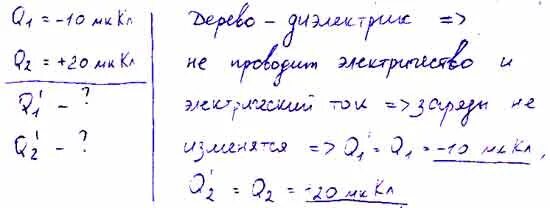 Q₁ = -10 мкКл
Q₂ = +20 мкКл
Q₁' - ?
Q₂' - ?
Дерево - диэлектрик =>
не проводит электричество и
электрический ток => заряды не
изменятся => Q₁' = Q₁ = -10 мкКл,
Q₂' = Q₂ = -20 мкКл